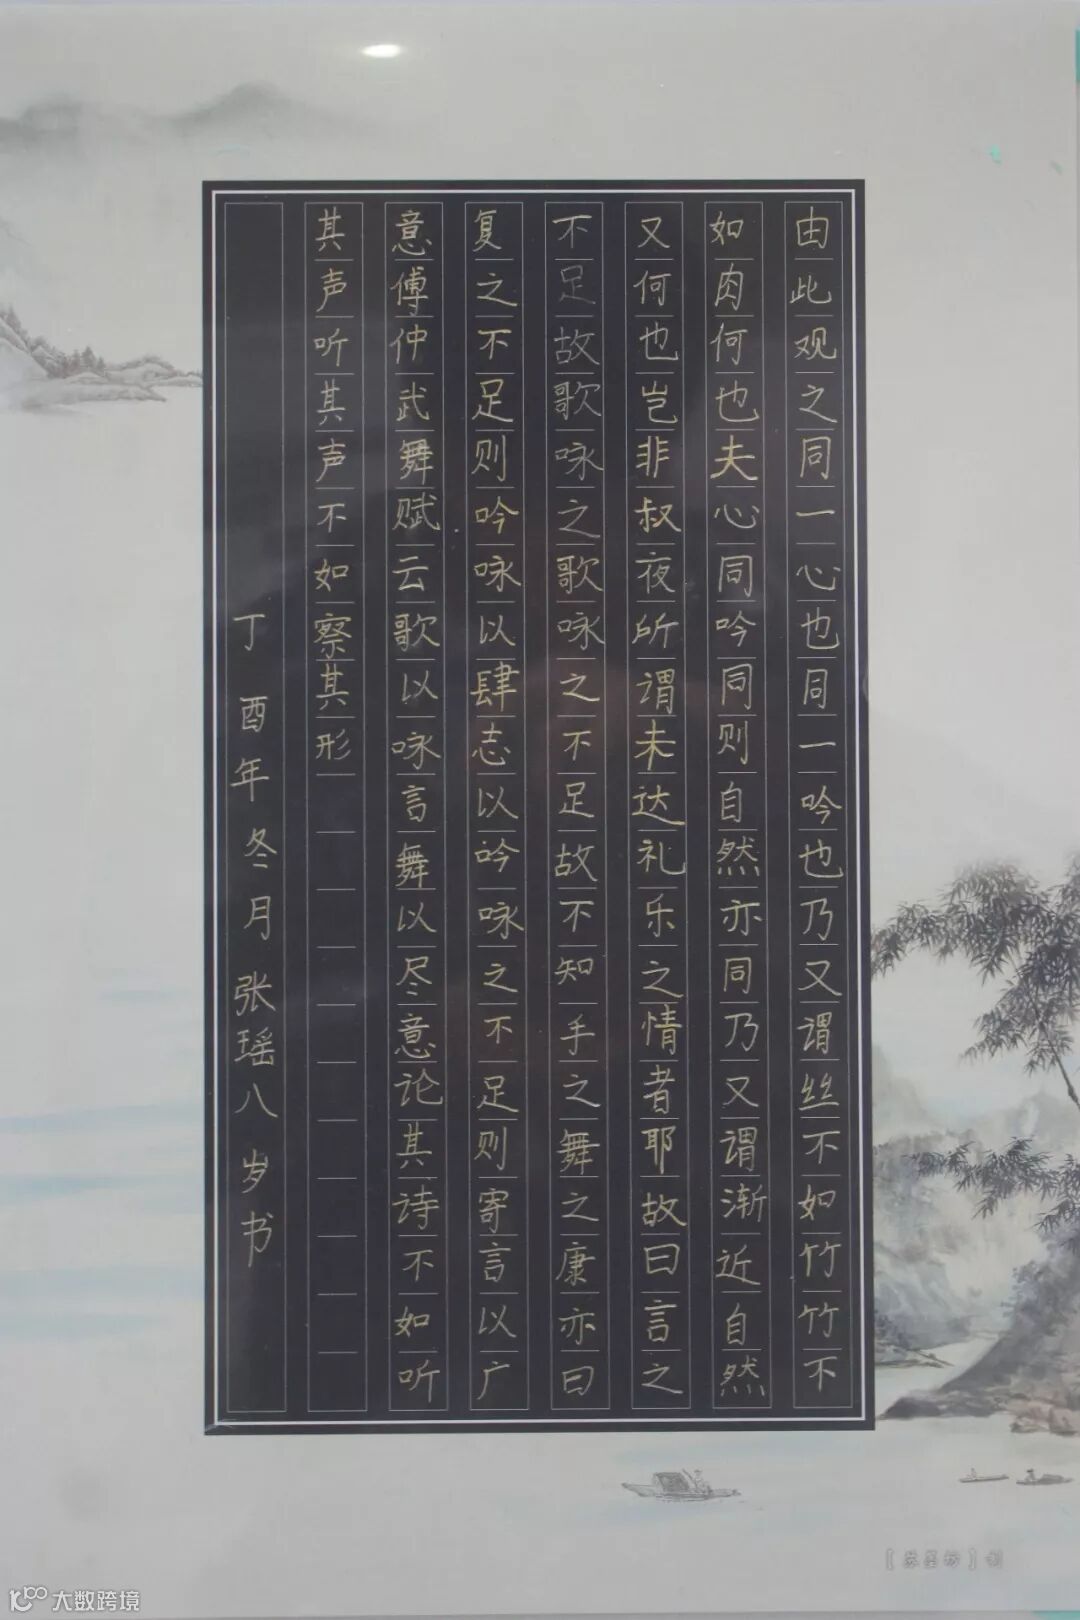 由此观之同一心也同一吟也乃又谓丝不如竹竹不
如肉何也夫心同吟同则自然亦同乃又谓渐近自然
又何也岂非叔夜所谓未达礼乐之情者耶故曰言之
不足故歌咏之歌咏之不足故不知手之舞之康亦曰
复之不足则吟咏以肆志以吟咏之不足则寄言以广
意傅仲武舞赋云歌以咏言舞以尽意论其诗不如听
其声听其声不如察其形
丁酉年冬月张瑶八岁书
大数跨境